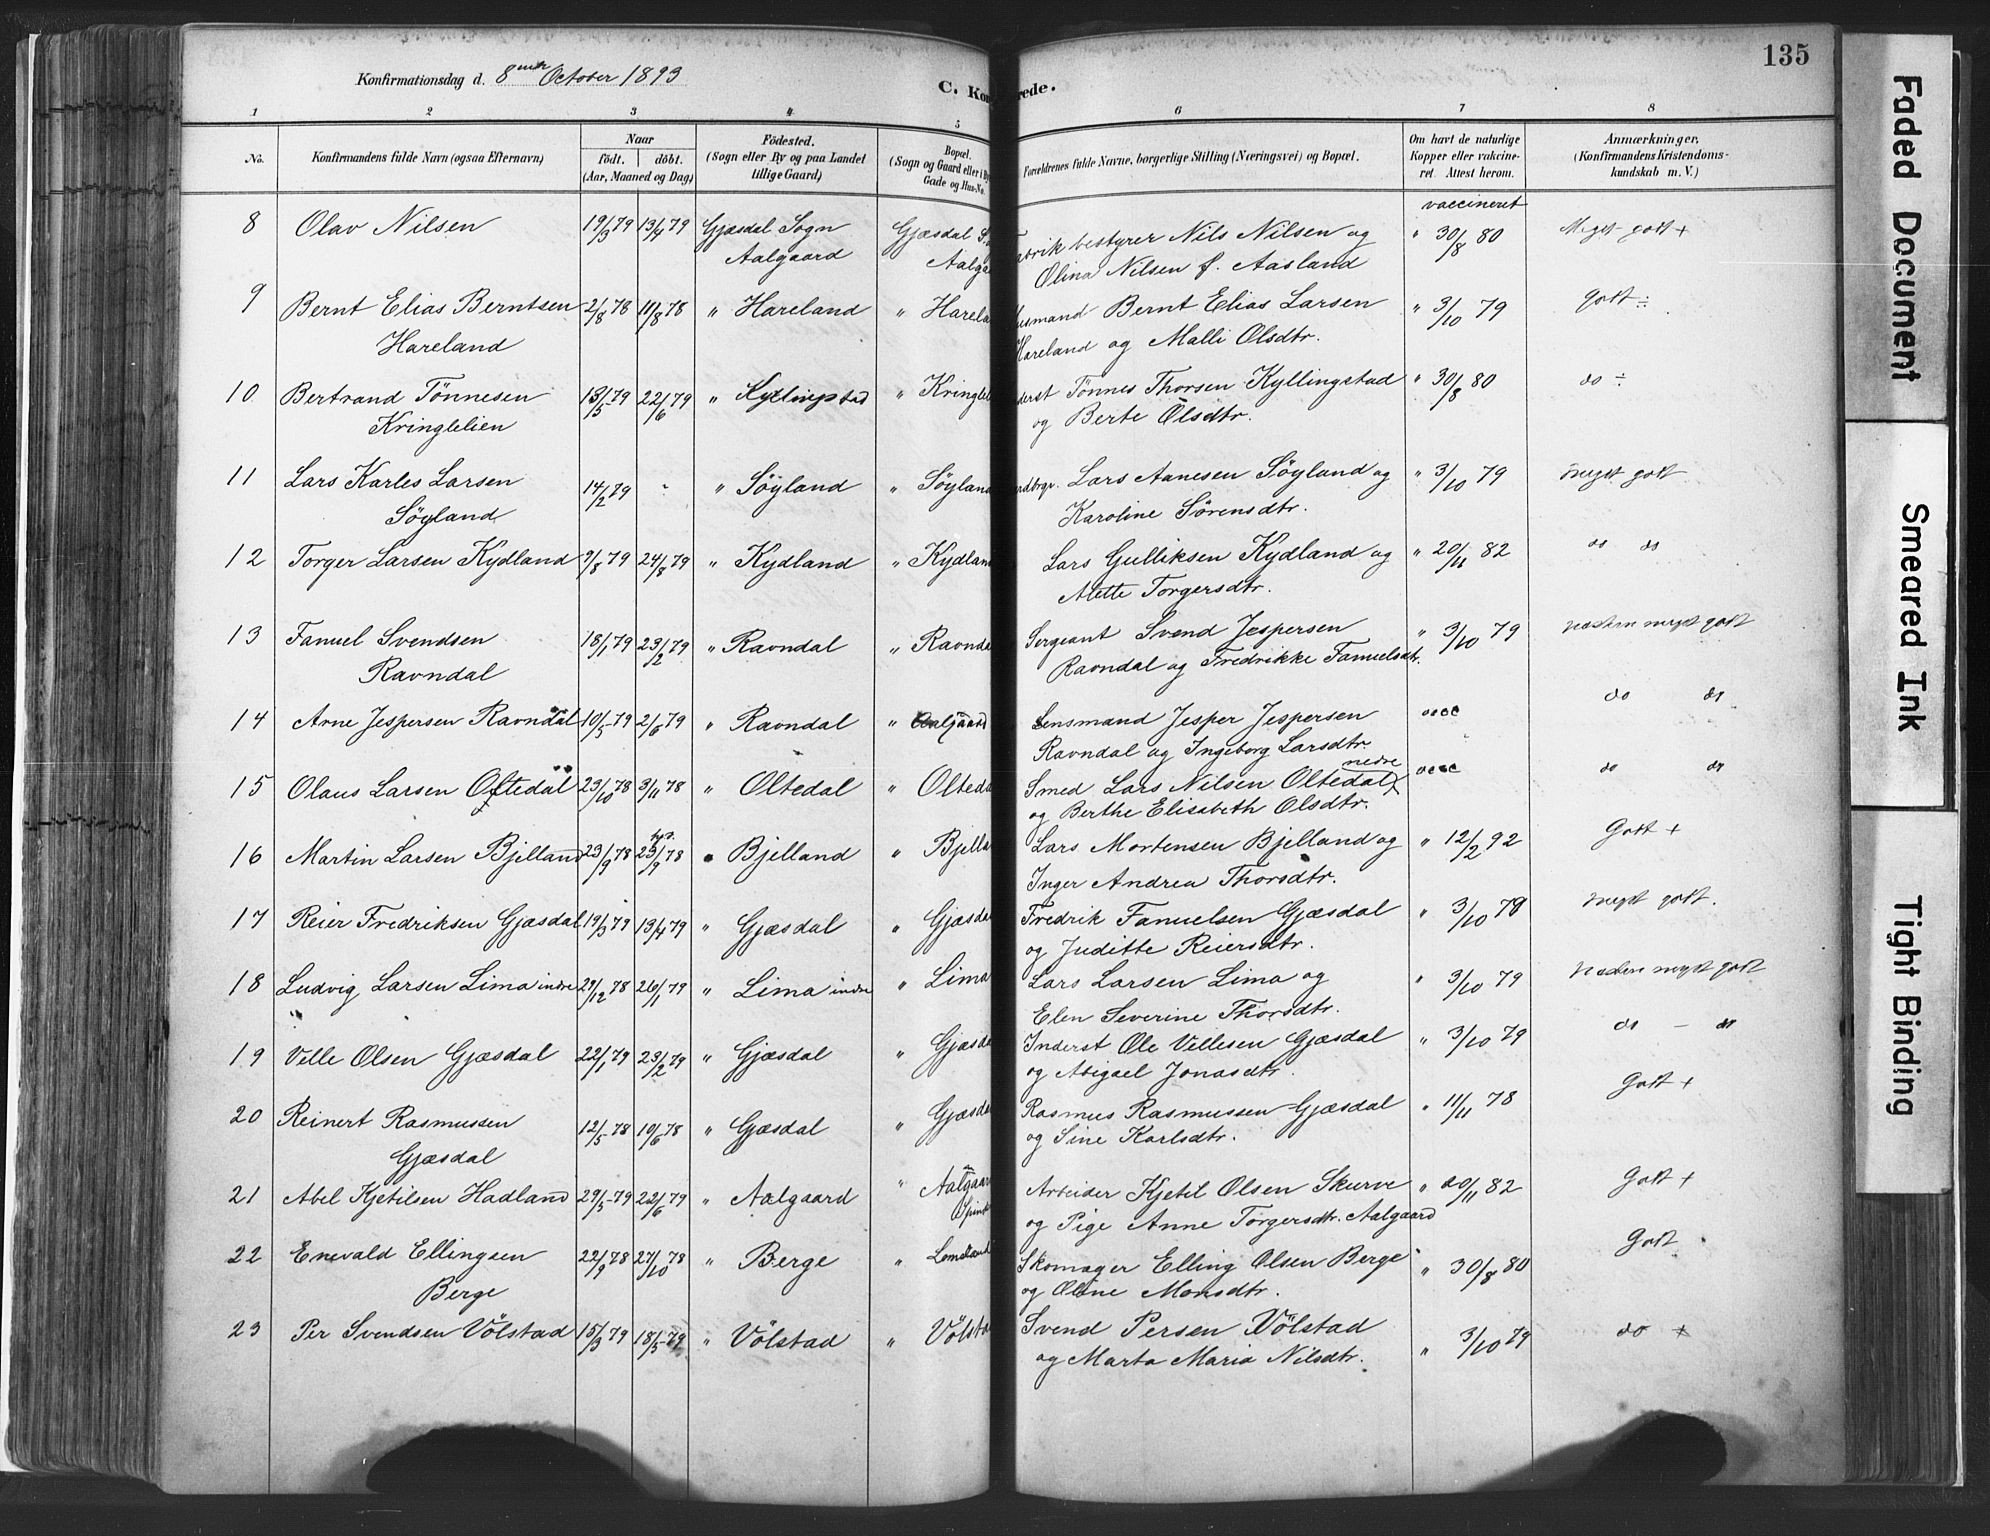 135
Konfirmationsdag d. 8 October 1893
C. Kon rede.
1 2 3 4 5 6 7 8
No. Konfirmandens fulde Navn (ogsaa Efternavn) Naar födt. döbt. (Aar, Maaned og Dag) Födested. (Sogn eller By og paa Landet tillige Gaard) Bopæl. (Sogn og Gaard eller i By Gade og Hus-No. Forældrenes fulde Navne, borgerlige Stilling (Næringsvei) og Bopæl. Om havt de naturlige Kopper eller vakcineret. Attest herom. Anmærkninger, (Konfirmandens Kristendomskundskab m. V.)
vaccineret
8 Olav Nilsen 19/3 79 13/4 79 Gjæsdal Sogn Gjæsdal S. Fabrik bestyrer Nils Nilsen og " 30/8 80 Meget godt +
Aalgaard Aalga Olina Nilsen f. Aasland
9 Bernt Elias Berntsen 2/8 78 11/8 78 " Hareland " Harela Husmand Bernt Elias Larsen " 3/10 79 Godt ÷
Hareland Hareland og Malli Olsdtr.
10 Bertrand Tönnesen 13/5 79 22/6 79 " Kyllingstad " Kringlel Inderst Tönnes Thorsen Kyllingstad " 30/8 80 do ÷
Kringlelien og Berte Olsdtr.
11 Lars Karles Larsen 14/2 79 " Söyland " Söyland Lars Aanesen Söyland og " 3/10 79 meget godt
Söyland Karoline Sörensdtr.
12 Torger Larsen Kydland 9/8 79 24/8 79 " Kydland " Kydlan Lars Gulliksen Kydland og " 20/11 82 do do
Alette Torgersdtr.
13 Fanuel Svendsen 18/1 79 23/2 79 " Ravndal " Ravnda Sergeant Svend Jespersen " 3/10 79 næsten meget godt
Ravndal Ravndal og Fredrikke Fanuelsdtr.
14 Arne Jespersen Ravndal 10/5 79 2/6 79 " Ravndal " Aalgaard Lensmand Jesper Jespersen do do
Ravndal og Ingeborg Larsdtr.
15 Olaus Larsen Oftedal 23/10 78 3/11 78 " Oltedal " Olteda Smed Lars Nilsen Oltedal nedre do do
og Berthe Elisabeth Olsdtr.
16 Martin Larsen Bjelland 23/9 78 23/9 78 Bjelland " Bjella Lars Mortensen Bjelland og " 12/2 92 Godt +
Inger Andrea Thorsdtr.
17 Reier Fredriksen Gjæsdal 19/3 79 13/4 79 " Gjæsdal " Gjæsda Fredrik Fanuelsen Gjæsdal " 3/10 79 meget godt.
og Juditte Reiersdtr.
18 Ludvig Larsen Lima indre 29/12 78 26/1 79 " Lima indre " Lima Lars Larsen Lima og " 3/10 79 Næsten meget godt
Elen Severine Thorsdtr.
19 Velle Olsen Gjæsdal 22/1 79 23/2 79 " Gjæsdal " Gjæsda Inderst Ole Vellesen Gjæsdal " 3/10 79 do - do
og Abigael Jonasdtr.
20 Reinert Rasmussen 12/5 78 10/6 78 " Gjæsdal " Gjæsda Rasmus Rasmussen Gjæsdal " 11/11 78 Godt +
Gjæsdal og Sine Karlsdtr.
21 Abel Kjetilsen Hadland 29/5 79 22/6 79 " Aalgaard " Aalgaar Arbeider Kjetil Olsen Skurve " 20/11 82 Godt +
Spin og Pige Anne Torgersdtr. Aalgaard
22 Enevald Ellingsen 22/9 78 27/10 78 " Berge " Lomeland Skomager Elling Olsen Berge " 30/8 80 Godt
Berge og Oline Monsdtr.
23 Per Svendsen Völstad 15/3 79 18/5 79 " Völstad " Völsta Svend Persen Völstad " 3/10 79 do +
og Marta Maria Nilsdtr.
Faded Document
Smeared Ink
Tight Binding